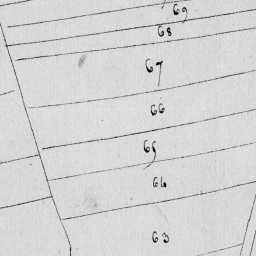 69
68
67
66
65
64
63